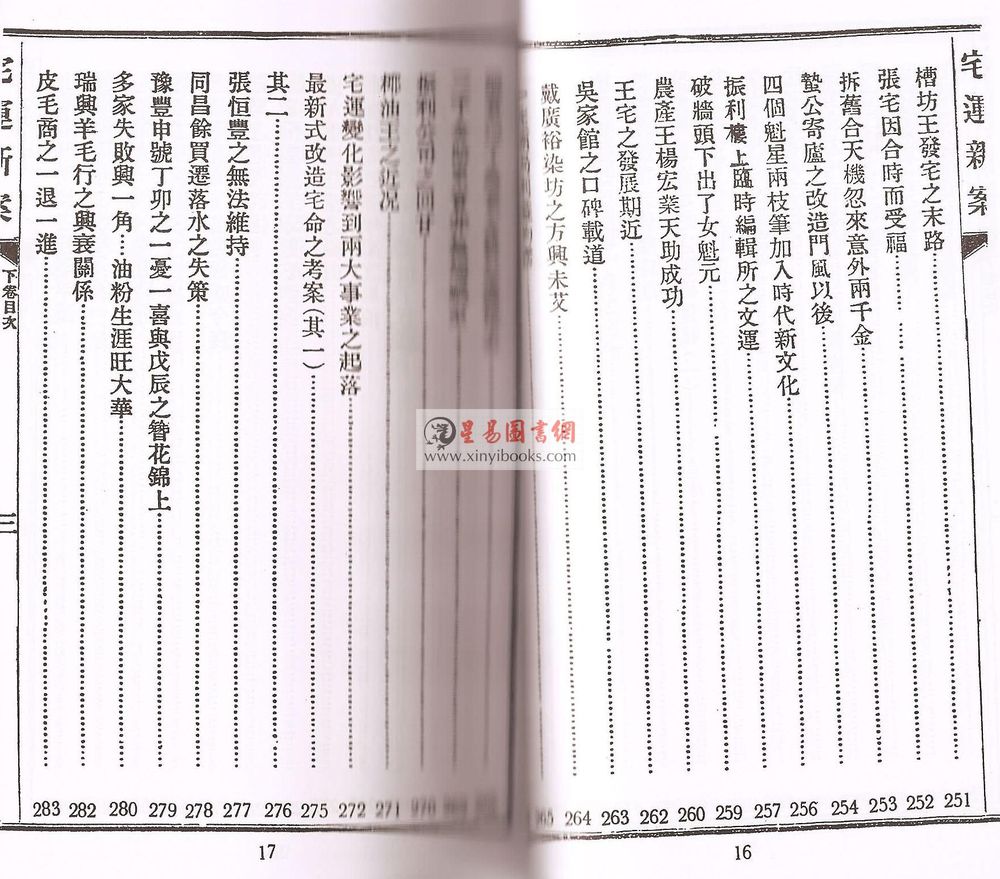 宅運新案
槽坊王發宅之末路 251
張宅因合時而受福 252
拆舊合天機忽來意外兩千金 253
蟄公寄廬之改造門風以後 254
四個魁星兩枝筆加入時代新文化 256
振利樓上臨時編輯所之文運 257
破牆頭下出了女魁元 259
農產王楊宏業天助成功 260
王宅之發展期近 262
吳家館之口碑載道 263
戴廣裕染坊之方興未艾 264
16
星易圖書網
www.xinyibooks.com
振利公司之回甘 270
椰油王之近況 271
宅運變化影響到兩大事業之起落 272
最新式改造宅命之考案(其一) 275
其二 276
張恒豐之無法維持 277
同昌餘買遷落水之失策 278
豫豐申號丁卯之一憂一喜與戊辰之簪花錦上 279
多家失敗興一角…油粉生涯旺大華 280
瑞興羊毛行之興衰關係 282
皮毛商之一退一進 283
宅運新案
下卷目次
三
17